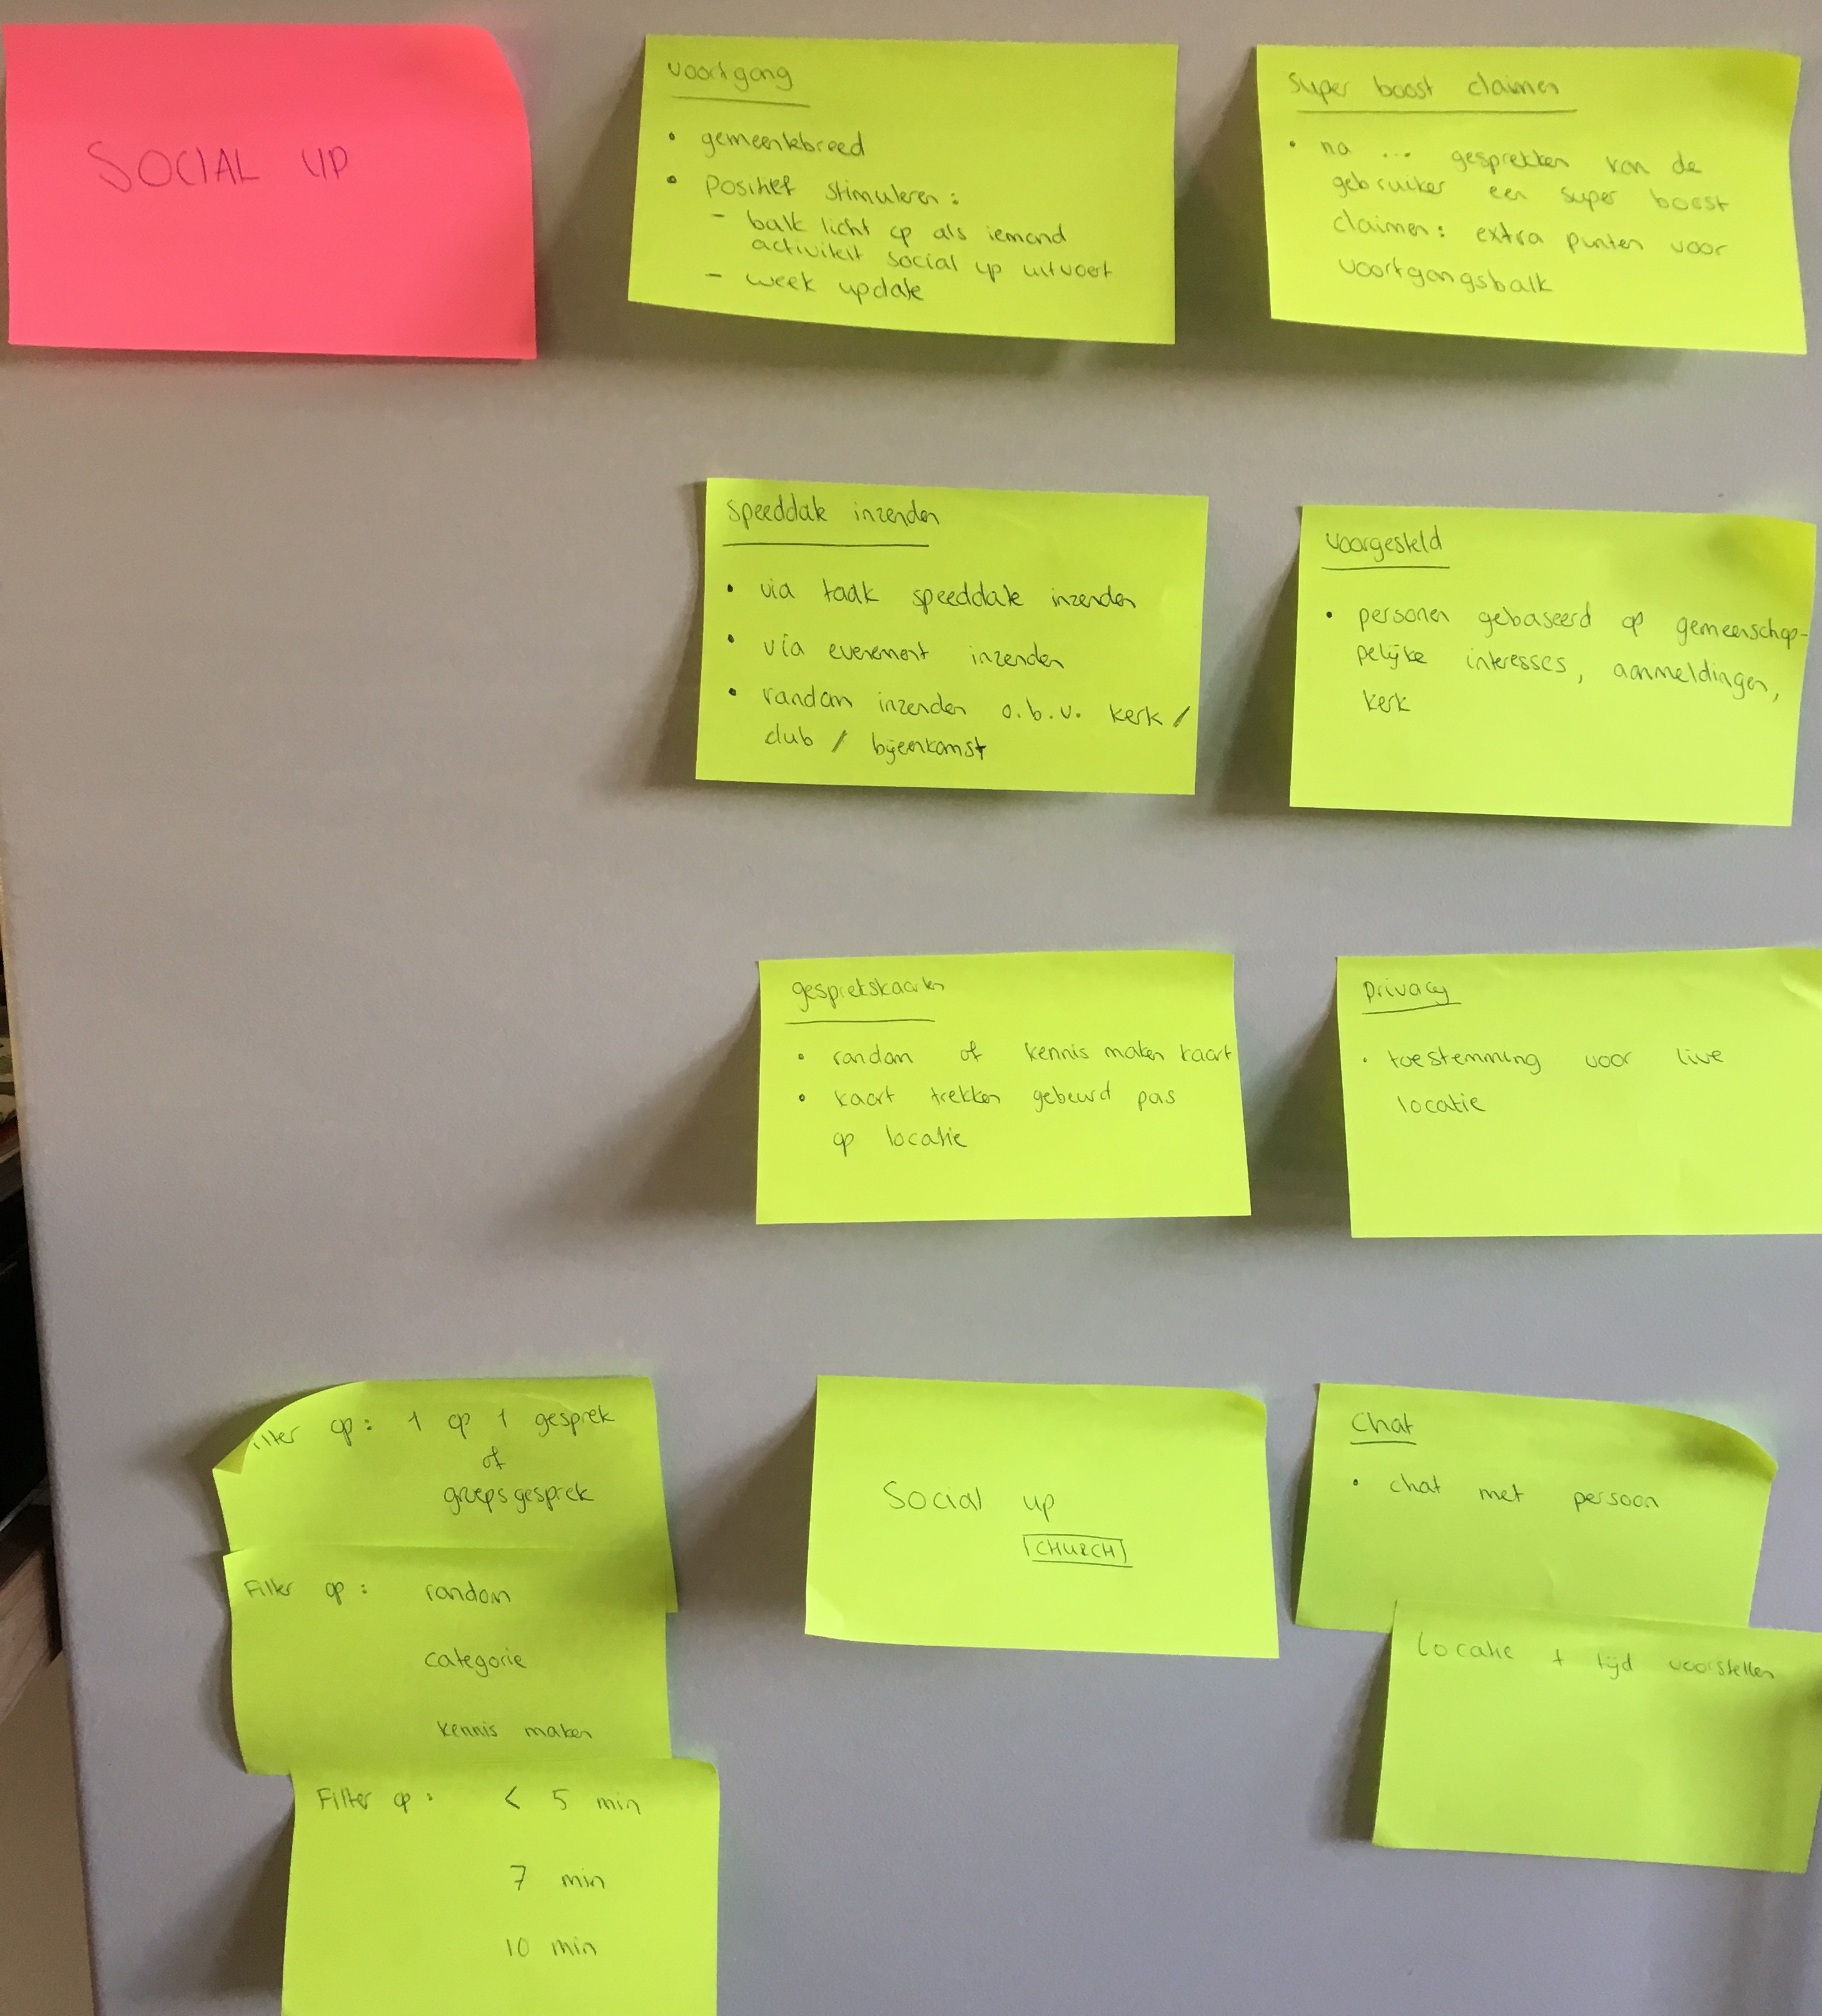 SOCIAL UP
voortgang
• gemeentebreed
• positief stimuleren:
- balk licht op als iemand
activiteit social up uitvoert
- week update
super boost claimen
• na ... gesprekken kan de
gebruiker een super boost
claimen: extra punten voor
voortgangsbalk
speeddate inzenden
• via taak speeddate inzenden
• via evenement inzenden
• random inzenden o.b.v. kerk /
club / bijeenkomst
voorgesteld
• personen gebaseerd op gemeenschap-
pelijke interesses, aanmeldingen,
kerk
gesprekskaarten
• random of kennis maken kaart
• kaart trekken gebeurd pas
op locatie
privacy
• toestemming voor live
locatie
Filter op: 1 op 1 gesprek
of
groepsgesprek
Filter op: random
categorie
kennis maken
Filter op: < 5 min
7 min
10 min
Social up
CHURCH
Chat
• chat met persoon
locatie + tijd voorstellen